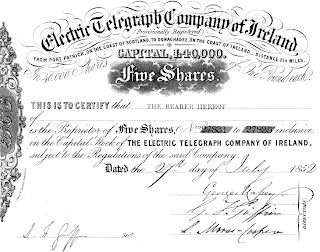 Electric Telegraph Company of Ireland,
Provisionally Registered
FROM PORT PATRICK, ON THE COAST OF SCOTLAND, TO DONAGHADEE, ON THE COAST OF IRELAND. DISTANCE 21¼ MILES.
CAPITAL, £40,000.
In 40,000 Shares of One Pound each.
Five Shares.
THIS IS TO CERTIFY that THE BEARER HEREOF
is the Proprietor of Five Shares, Nos to inclusive,
in the Capital Stock of THE ELECTRIC TELEGRAPH COMPANY OF IRELAND,
subject to the Regulations of the said Company.
Dated the 27th day of July 1852
George